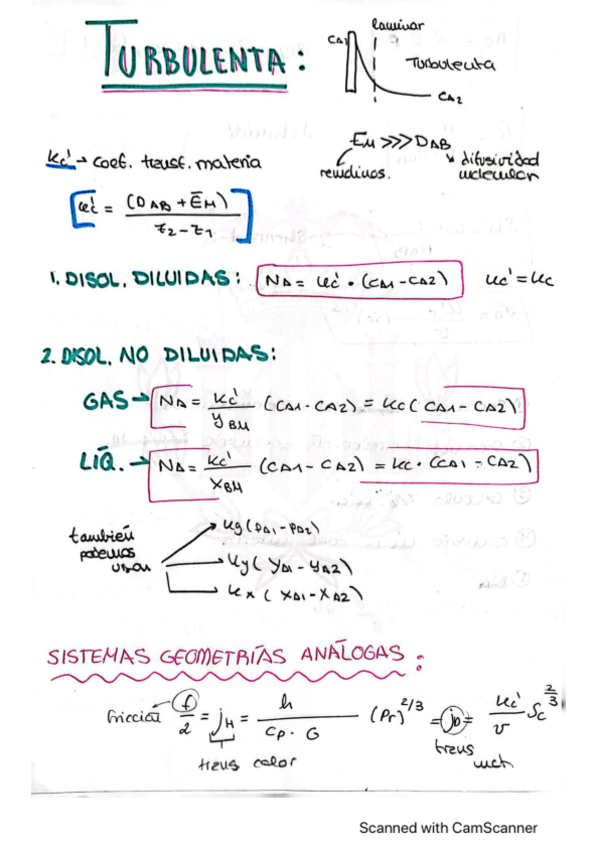 TURBULENTA:
laminar
CA1
Turbulenta
CA2
kc' → coef. transf. materia
EM >>> DAB
remolinos.
difusividad
molecular
kc' = (DAB + ĒM) / z2 - z1
1. DISOL. DILUIDAS: NA = kc' · (CA1 - CA2) kc' = kc
2. DISOL. NO DILUIDAS:
GAS → NA = kc' / yBM (CA1 - CA2) = kc (CA1 - CA2)
LÍQ. → NA = kc' / xBM (CA1 - CA2) = kc · (CA1 - CA2)
también
podemos
usar
kg (pA1 - pA2)
ky (yA1 - yA2)
kx (xA1 - xA2)
SISTEMAS GEOMETRÍAS ANÁLOGAS:
fricción f/2 = jH = h / cp · G (Pr)^2/3 = jD = kc' / v Sc^2/3
trans calor
trans
mat
Scanned with CamScanner